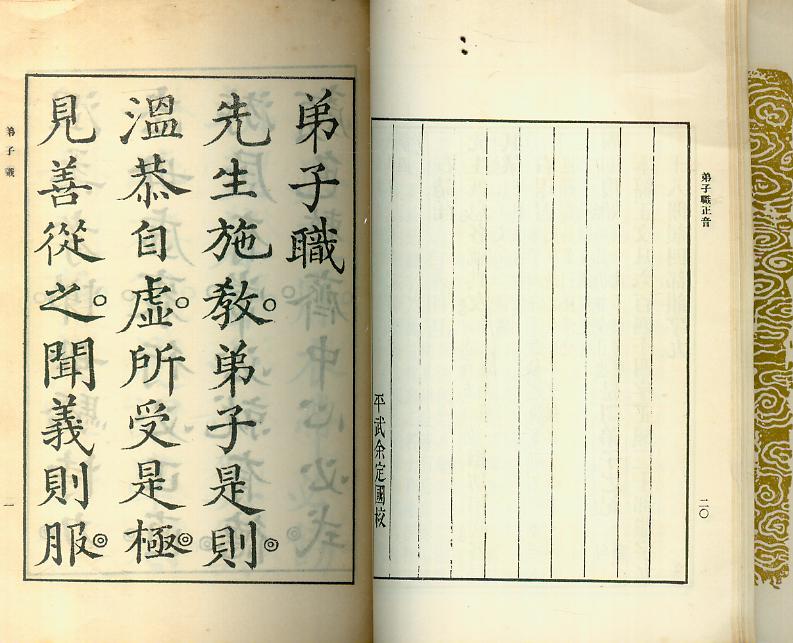 弟子職正音
二〇
平武余定國校
弟子職
先生施教。弟子是則◎
溫恭自虛。所受是極◎
見善從之。聞義則服◎
弟子職
一